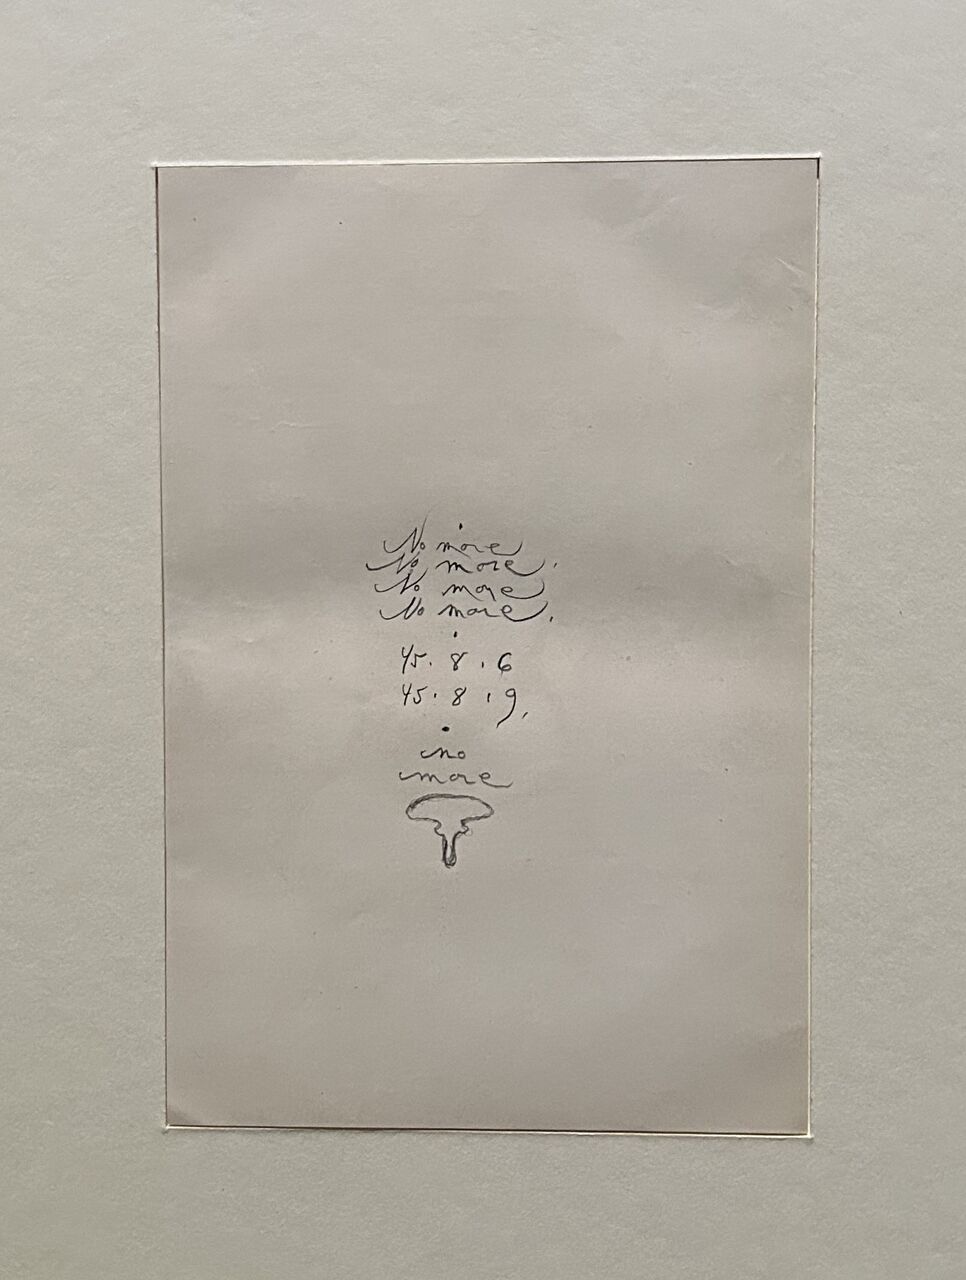 No more
No more.
No more
No more.
45.8.6
45.8.9.
no
more